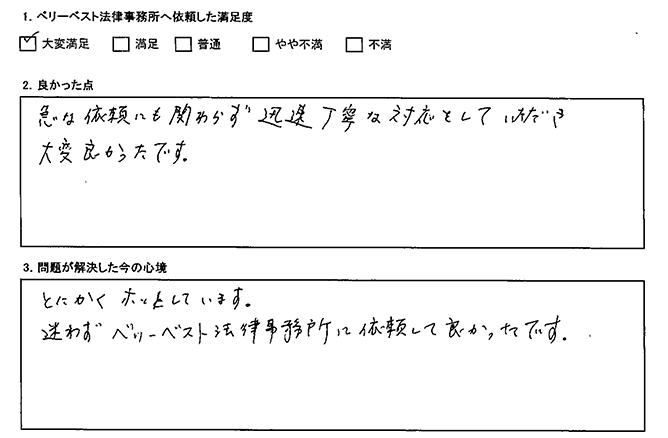 1. ベリーベスト法律事務所へ依頼した満足度
☑ 大変満足 □ 満足 □ 普通 □ やや不満 □ 不満
2. 良かった点
急な依頼にも関わらず迅速丁寧な対応をして いただき
大変良かったです。
3. 問題が解決した今の心境
とにかくホッとしています。
迷わずベリーベスト法律事務所に依頼して良かったです。